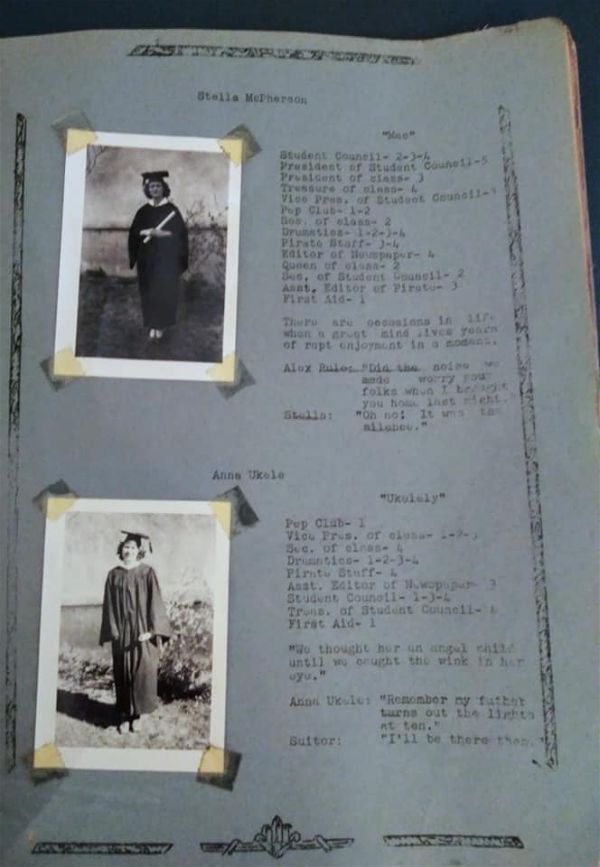 Stella McPherson
"Mac"
Student Council- 2-3-4
President of Student Council-
President of class- 3
Treasure of class- 4
Vice Pres. of Student Council-
Pep Club- 1-2
Sec. of class- 2
Dramatics- 1-2-3-4
Pirate Staff- 3-4
Editor of Newspaper- 4
Queen of class- 2
Sec. of Student Council- 2
Asst. Editor of Pirate- 3
First Aid- 1
There are occasions in life
when a great mind lives years
of rapt enjoyment in a moment.
Alex Rule: "Did the noise we
made worry your
folks when I brought
you home last night."
Stella: "Oh no! It was the
silence."
Anna Ukele
"Ukelely"
Pep Club- 1
Vice Pres. of class- 1-2-3
Sec. of class- 4
Dramatics- 1-2-3-4
Pirate Staff- 4
Asst. Editor of Newspaper- 3
Student Council- 1-3-4
Treas. of Student Council-
First Aid- 1
"We thought her an angel child
until we caught the wink in her
eye."
Anna Ukele: "Remember my father
turns out the lights
at ten."
Suitor: "I'll be there then."